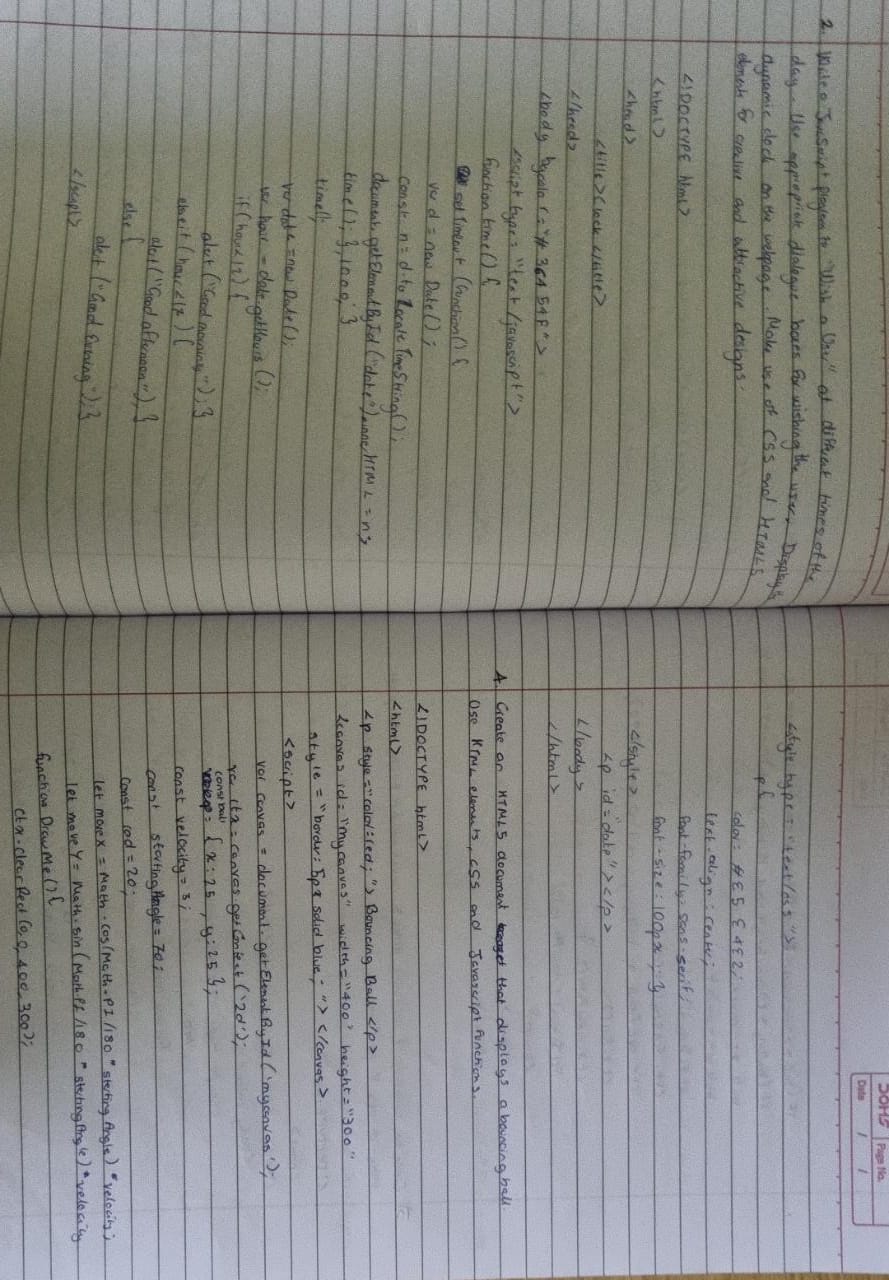 2. Write a JavaScript program to "Wish a User" at different times of the
day. Use appropriate dialogue boxes for wishing the user. Display a
dynamic clock on the webpage. Make use of CSS and HTML5
elements for creative and attractive designs.
<!DOCTYPE html>
<html>
<head>
<title>Clock</title>
</head>
<body bgcolor="#36454F">
<script type="text/javascript">
function time() {
setTimeout (function() {
var d = new Date();
const n = d.toLocateTimeString();
document.getElementById("date").innerHTML = n;
time(); }, 1000; }
time();
var date = new Date();
var hour = date.getHours();
if (hour<12) {
alert("Good morning"); }
else if (hour<17) {
alert("Good afternoon"); }
else {
alert("Good Evening"); }
</script>
SOHS Page No.
Date / /
<style type="text/css">
p{
color: #E5E4E2;
text-align: center;
font-family: sans-serif;
font-size: 100px; }
</style>
<p id="date"></p>
</body>
</html>
4. Create an HTML5 document that displays a bouncing ball
Use HTML elements, CSS and Javascript functions.
<!DOCTYPE html>
<html>
<p style="color:red;"> Bouncing Ball </p>
<canvas id="mycanvas" width="400" height="300"
style="border: 5px solid blue;"></canvas>
<script>
var canvas = document.getElementById('mycanvas');
var ctx = canvas.getContext('2d');
const ball = {x:25, y:25};
const velocity = 3;
const startingAngle = 70;
const rad = 20;
let moveX = Math.cos(Math.PI/180 * startingAngle) * velocity;
let moveY = Math.sin(Math.PI/180 * startingAngle) * velocity
function DrawMe() {
ctx.clearRect(0,0,400,300);